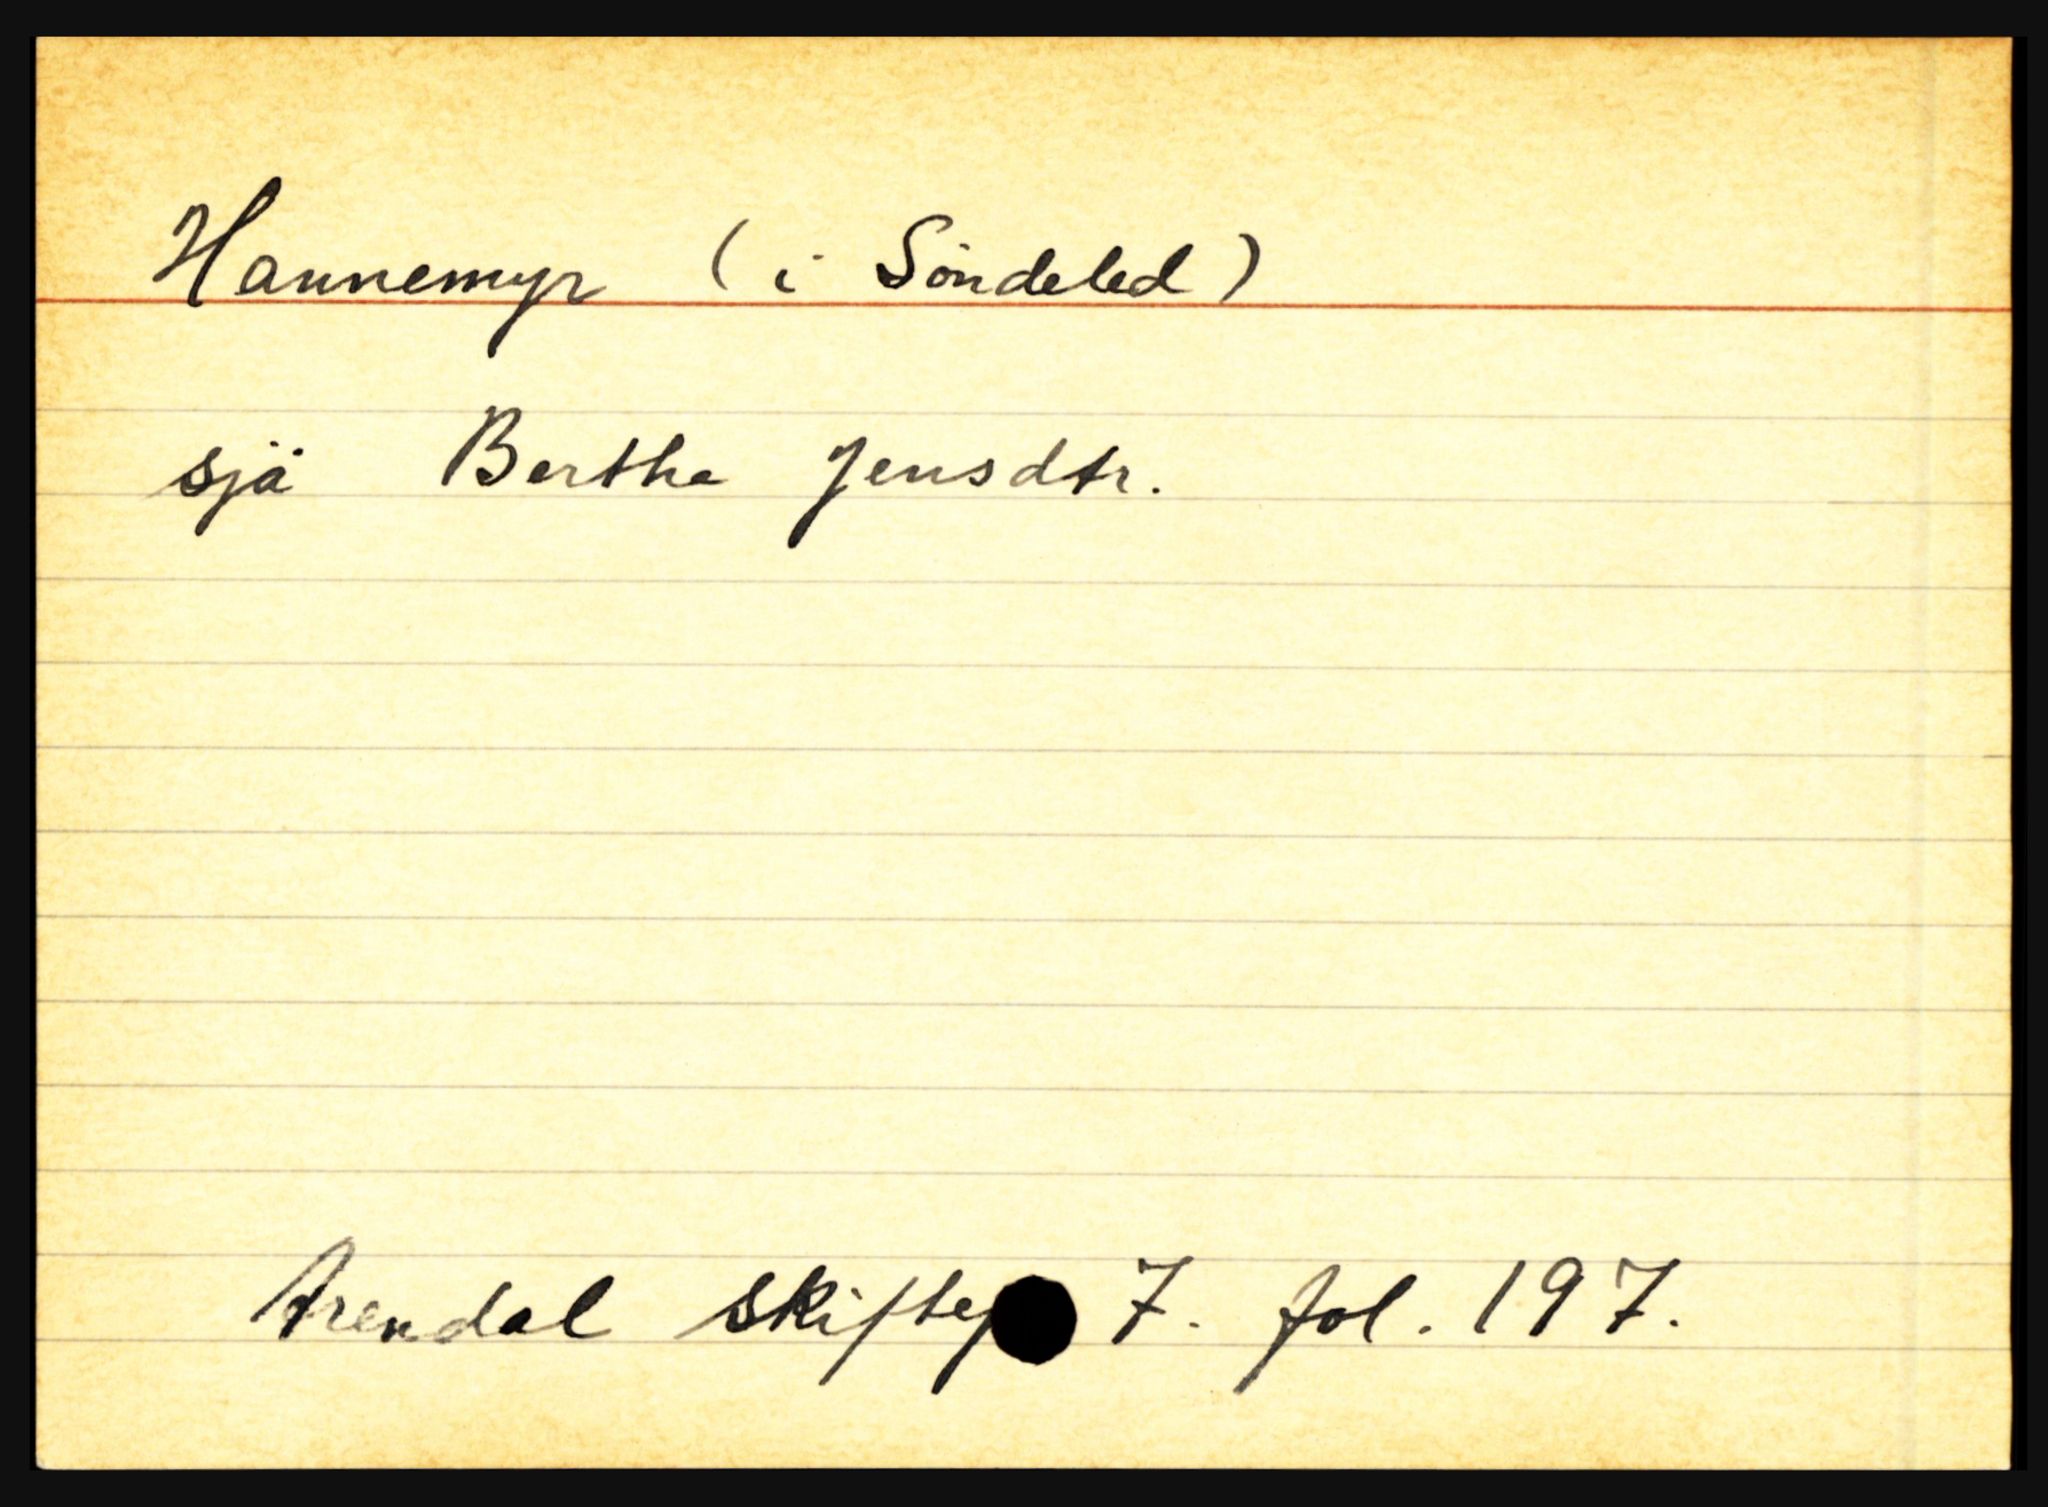 Hannemyr (i Söndeled)
sjå Berthe Jensdtr.
Arendal skiftep 7. fol. 197.